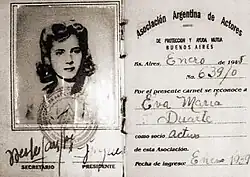 Asociación Argentina de Actores
DE PROTECCION Y AYUDA MUTUA
BUENOS AIRES
Bs. Aires, Enero de 1945
No. 639/0
Por el presente carnet se reconoce a
Eva Maria
Duarte
como socio Activo
de esta Asociación.
Fecha de ingreso Enero
SECRETARIO
PRESIDENTE